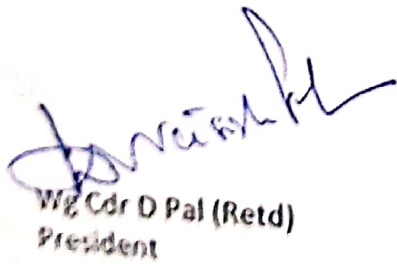 Wg Cdr D Pal (Retd)
President